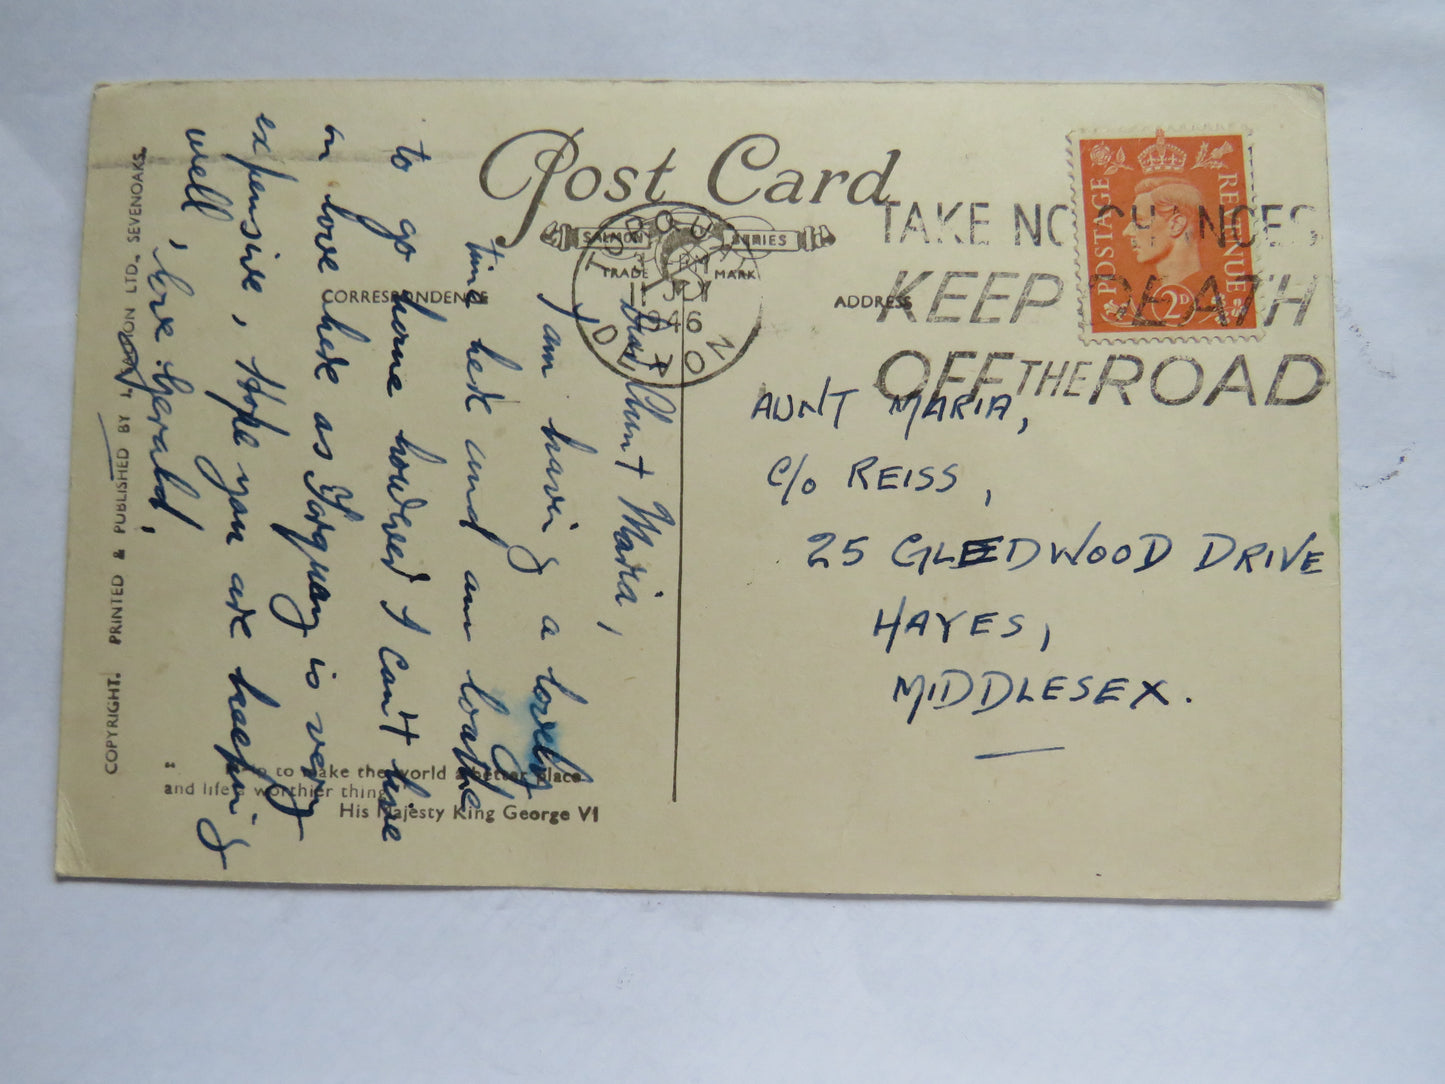 Post Card
SALMON SERIES
TRADE MARK
CORRESPONDENCE
ADDRESS
PM
JLY
1946
DEVON
TAKE NO CHANCES
KEEP DEATH
OFF THE ROAD
POSTAGE
REVENUE
2D
AUNT MARIA,
C/o REISS,
25 GLEDWOOD DRIVE
HAYES,
MIDDLESEX.
Dear Aunt Maria,
I am having a lovely
time here and am loathe
to go home however I can't live
in love here as Torquay is very
expensive, Hope you are keeping
well, love Gerald,
to make the world a better place
and life a worthier thing
His Majesty King George VI
COPYRIGHT. PRINTED & PUBLISHED BY J. SALMON LTD., SEVENOAKS.